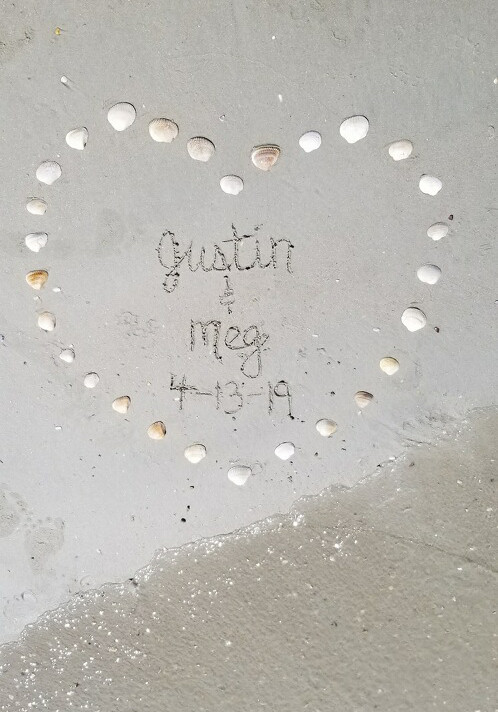 Justin
&
Meg
4-13-19